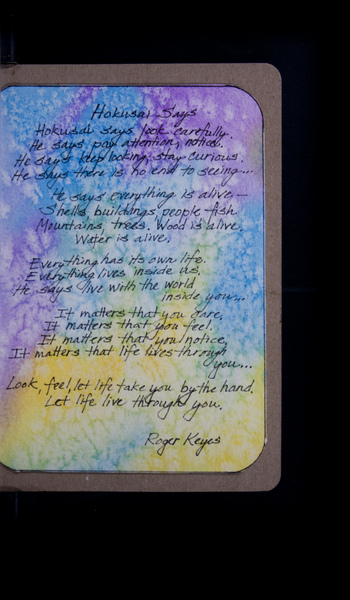 Hokusai Says
Hokusai says look carefully.
He says pay attention, notice.
He says keep looking, stay curious.
He says there is no end to seeing...
He says everything is alive—
Shells, buildings, people, fish
Mountains, trees. Wood is alive.
Water is alive.
Everything has its own life.
Everything lives inside us.
He says live with the world
inside you...
It matters that you care.
It matters that you feel.
It matters that you notice.
It matters that life lives through
you...
Look, feel, let life take you by the hand.
Let life live through you.
Roger Keyes